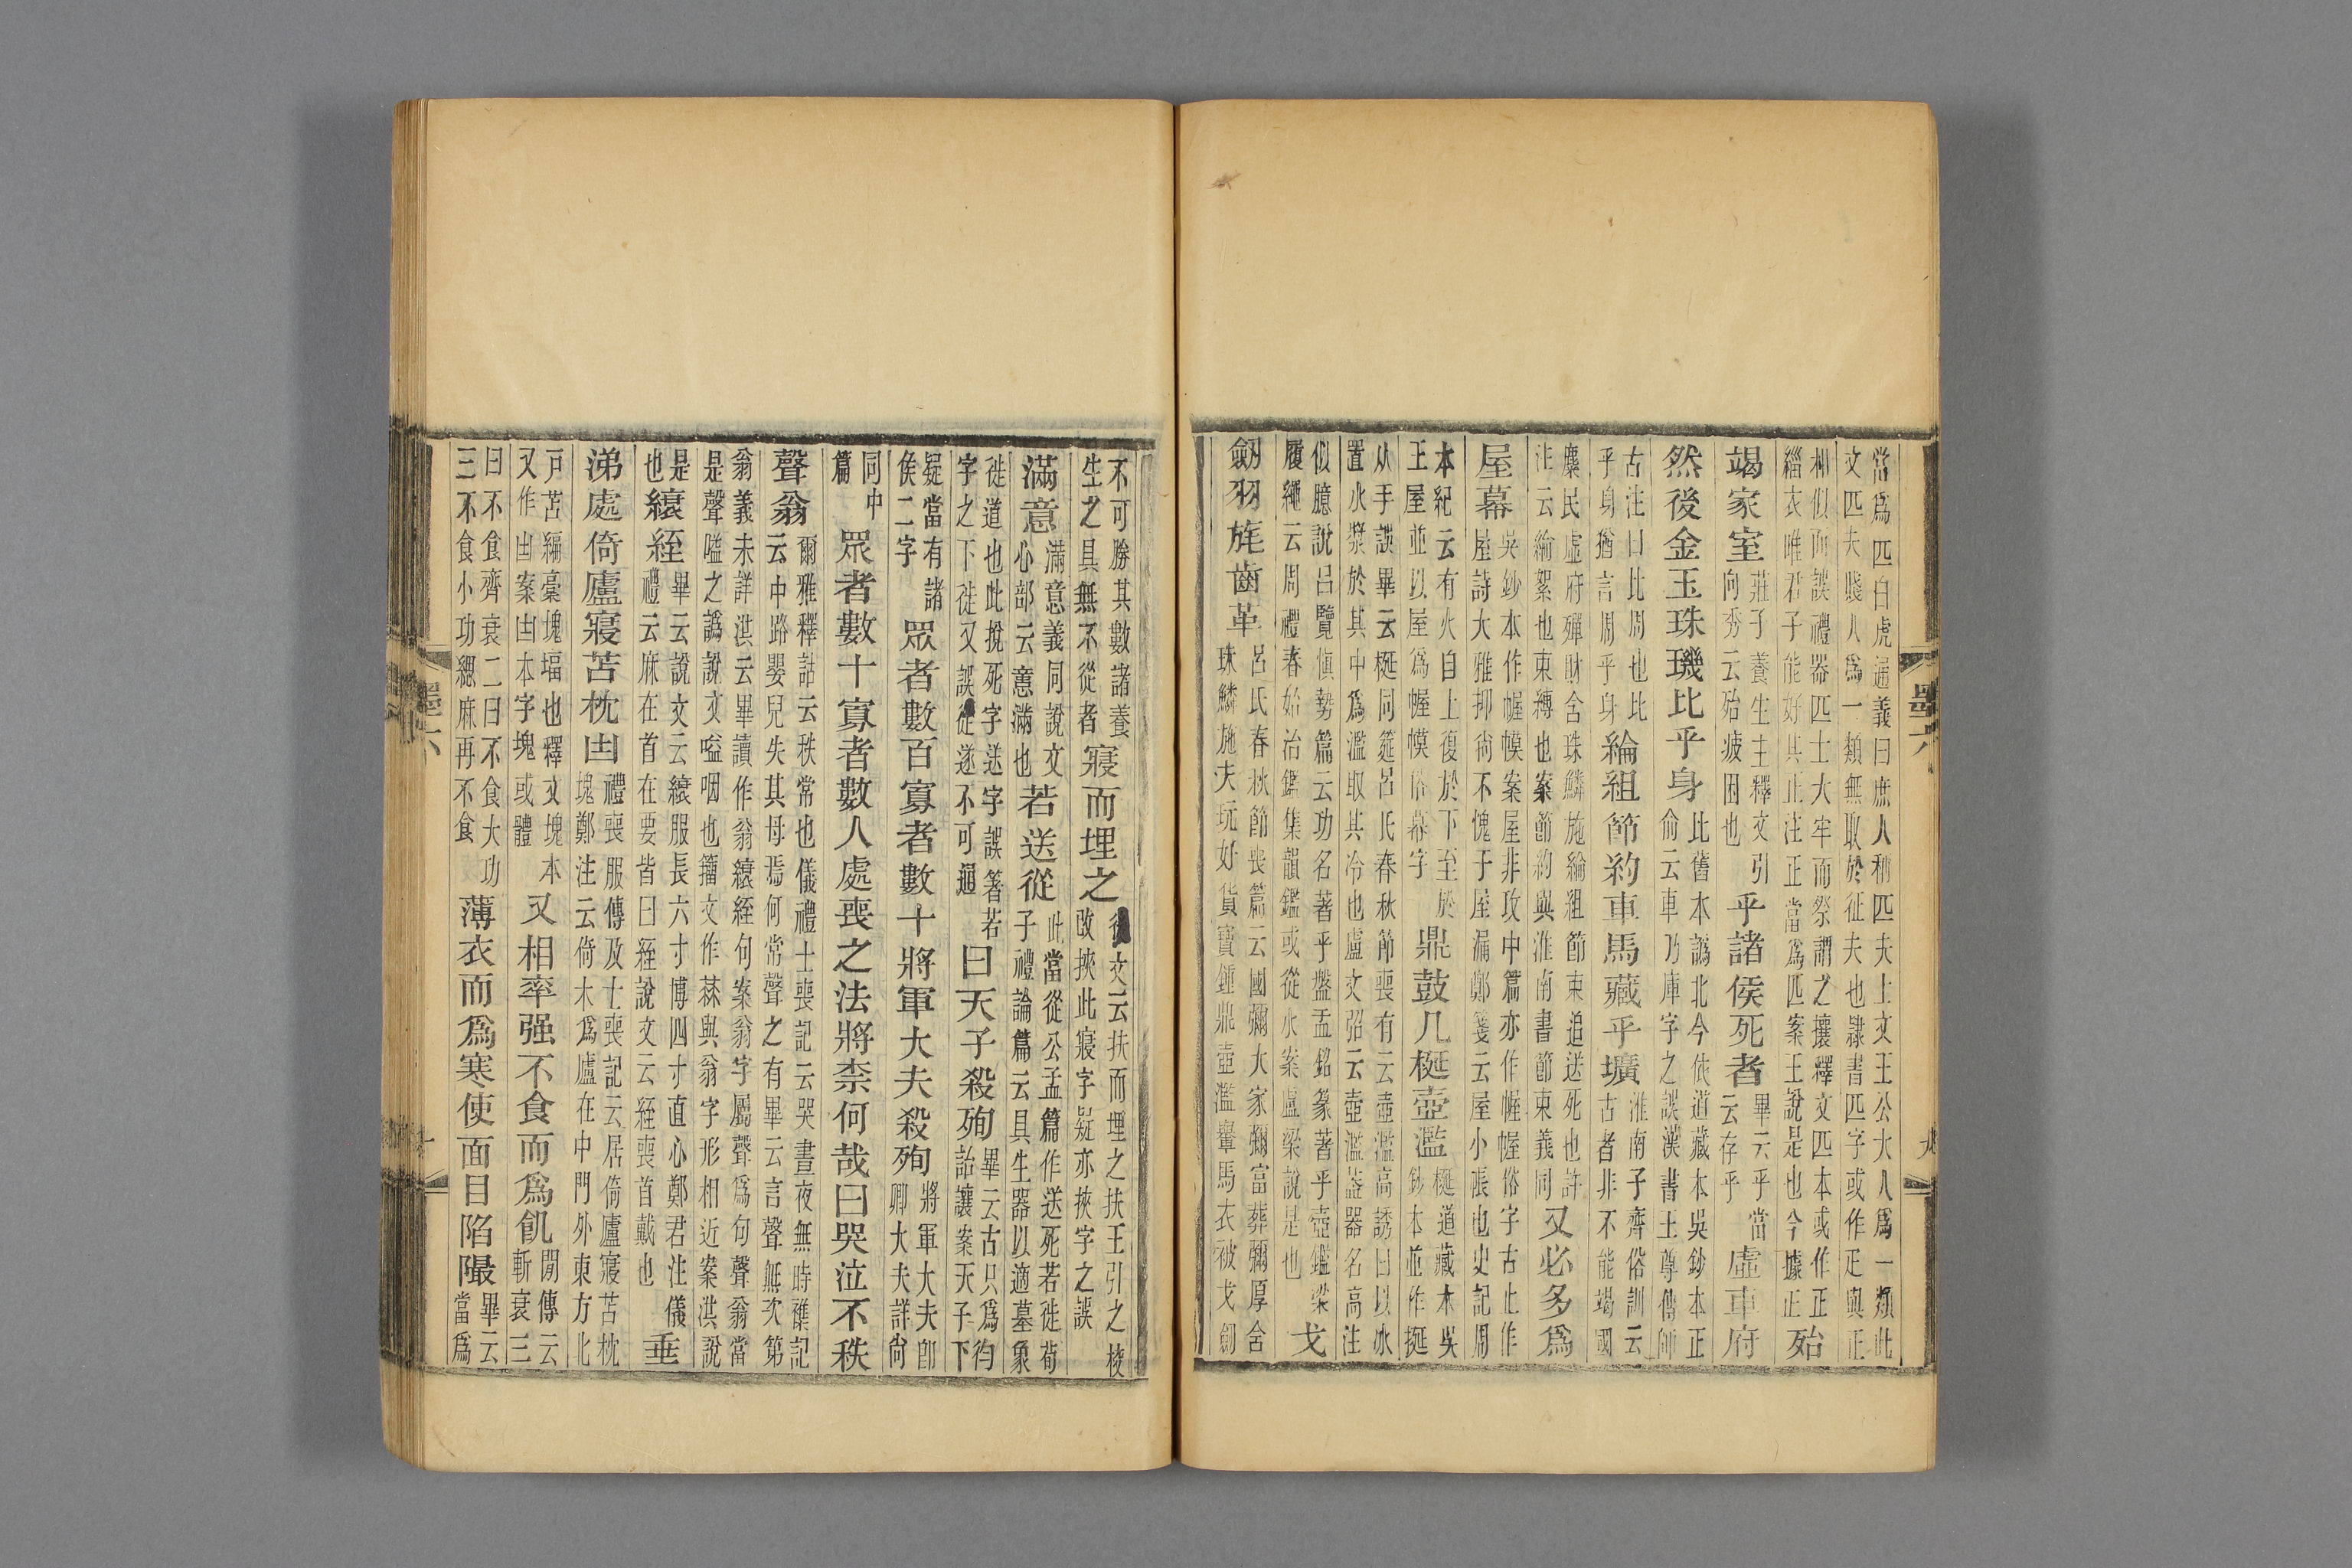 當爲匹白虎通義曰庶人稱匹夫上文王公大人爲一類此
文匹夫賤人爲一類無取於征夫也隸書匹字或作疋與正
相似而誤禮器匹士大牢而祭謂之攘釋文匹本或作正
緇衣唯君子能好其正注正當爲匹案王說是也今據正殆
竭家室莊子養生主釋文引向秀云殆疲困也乎諸侯死者畢云乎當云存乎虛車府
然後金玉珠璣比乎身比舊本譌北今依道藏本吳鈔本正俞云車乃庫字之誤漢書王尊傳師
古注曰比周也比乎身猶言周乎身綸組節約車馬藏乎壙淮南子齊俗訓云古者非不能竭國
麋民虛府殫財含珠鱗施綸組節束追送死也許
注云綸絮也束縛也案節約與淮南書節束義同又必多爲
屋幕吳鈔本作幄幙案屋非攻中篇亦作幄幄俗字古止作屋詩大雅抑尚不愧于屋漏鄭箋云屋小帳也史記周
本紀云有火自上復於下至於王屋並以屋爲幄幙俗幕字鼎鼓几梴壺濫梴道藏本吳鈔本並作挻
从手誤畢云梴同筵呂氏春秋節喪有云壺濫高誘曰以冰
置水漿於其中爲濫取其冷也盧文弨云壺濫葢器名高注
似臆說呂覽愼勢篇云功名著乎盤盂銘篆著乎壺鑑梁
履繩云周禮春始治鑑集韻鑑或從水案盧梁說是也戈
劒羽旄齒革呂氏春秋節喪篇云國彌大家彌富葬彌厚含珠鱗施夫玩好貨寶鍾鼎壺濫轝馬衣被戈劒
墨六
九
不可勝其數諸養生之具無不從者寢而埋之後文云扶而埋之扶王引之校改挾此寢字疑亦挾字之誤
滿意滿意義同說文心部云意滿也若送從此當從公孟篇作送死若徙荀子禮論篇云具生器以適墓象
徙道也此挩死字送字誤箸若字之下徙又誤從遂不可通曰天子殺殉畢云古只爲徇詒讓案天子下
疑當有諸侯二字眾者數百寡者數十將軍大夫殺殉將軍大夫卽卿大夫詳尙
同中篇眾者數十寡者數人處喪之法將柰何哉曰哭泣不秩
聲翁爾雅釋詁云秩常也儀禮士喪記云哭晝夜無時襍記云中路嬰兒失其母焉何常聲之有畢云言聲無次第
翁義未詳洪云畢讀作翁縗絰句案翁字屬聲爲句聲翁當
是聲嗌之譌說文嗌咽也籀文作𦰩與翁字形相近案洪說
是也縗絰畢云說文云縗服長六寸博四寸直心鄭君注儀禮云麻在首在要皆曰絰說文云絰喪首戴也垂
涕處倚廬寢苫枕凷禮喪服傳及士喪記云居倚廬寢苫枕塊鄭注云倚木爲廬在中門外東方北
戶苫編槀塊堛也釋文塊本又作凷案凷本字塊或體又相率强不食而爲飢閒傳云斬衰三
日不食齊衰二日不食大功三不食小功緦麻再不食薄衣而爲寒使面目陷陬畢云當爲
墨六
十